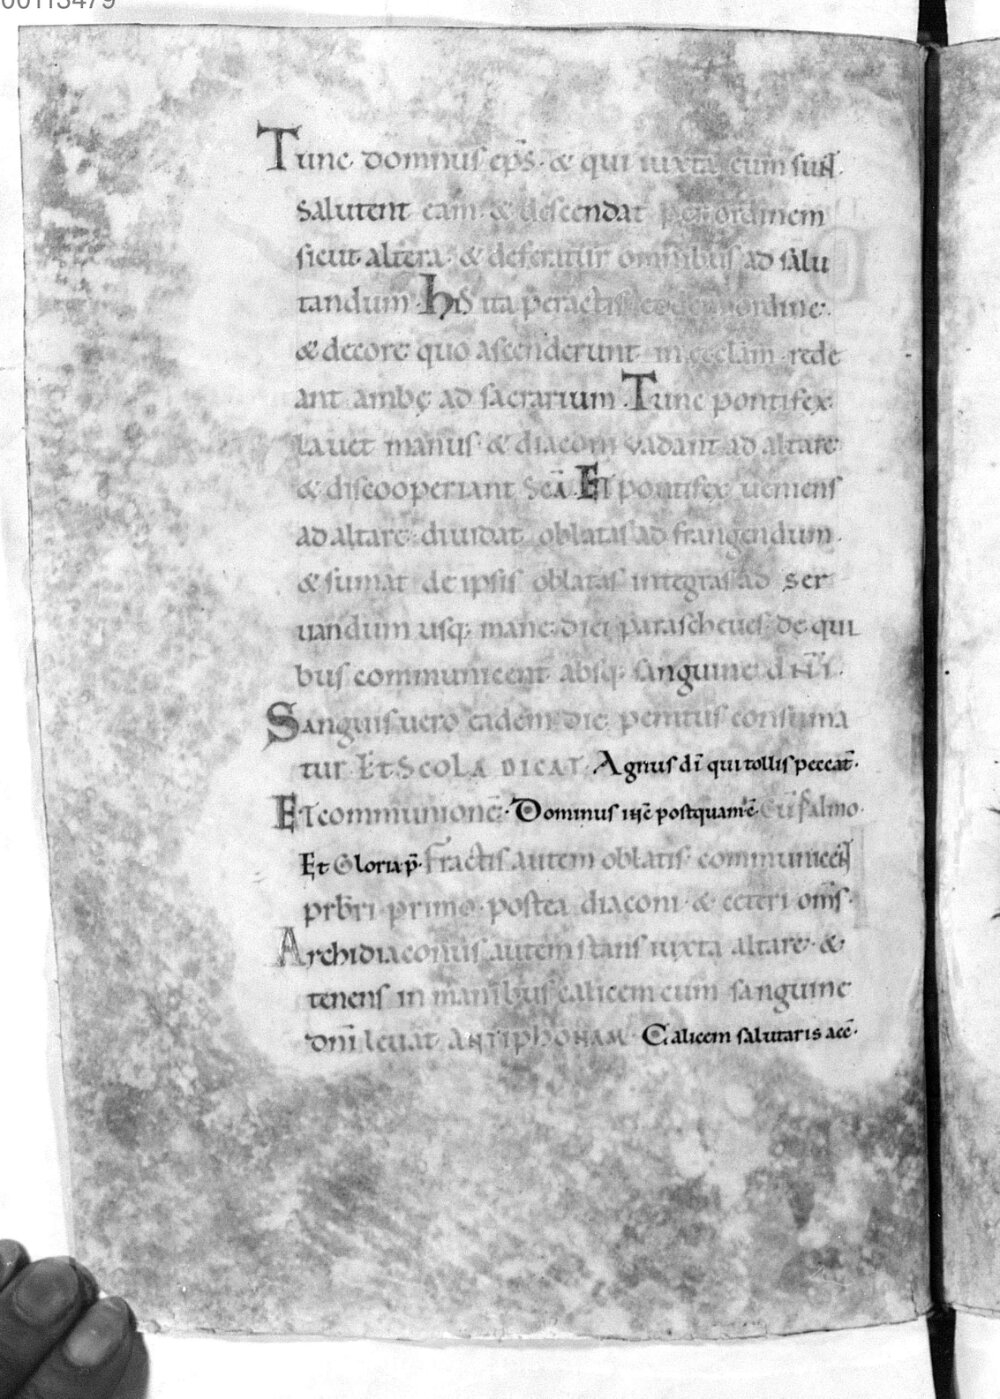 00113479
Tunc dominus ep̅s · & qui iuxta eum sunt ·
salutent eam · & descendat per ordinem
sicut altera · & deferatur omnibus ad salu
tandum · his ita peractis eodem ordine ·
& decore quo ascenderunt in eccłam rede
ant ambę ad sacrarium · Tunc pontifex
lauet manus · & diaconi vadant ad altare
& discooperiant sc̅a · Et pontifex ueniens
ad altare diuidat oblatas ad frangendum ·
& sumat de ipsis oblatas integras ad ser
uandum usq; mane diei parascheues de qui
bus communicent absq; sanguine dn̅i ·
Sanguis uero eadem die penitus consuma
tur · Et Scola DICAT · Agnus di̅ qui tollis peccat̅ ·
Et communione̅ · Dominus ih̅c postquam c̅ Cu̅ psalmo ·
Et Gloria p̅ · Fractis autem oblatis communicent
prb̅ri primo · postea diaconi · & ceteri om̅s ·
Archidiaconus autem stans iuxta altare · &
tenens in manibus calicem cum sanguine
dn̅i leuat ANTIPHONAM · Calicem salutaris acc̅ ·